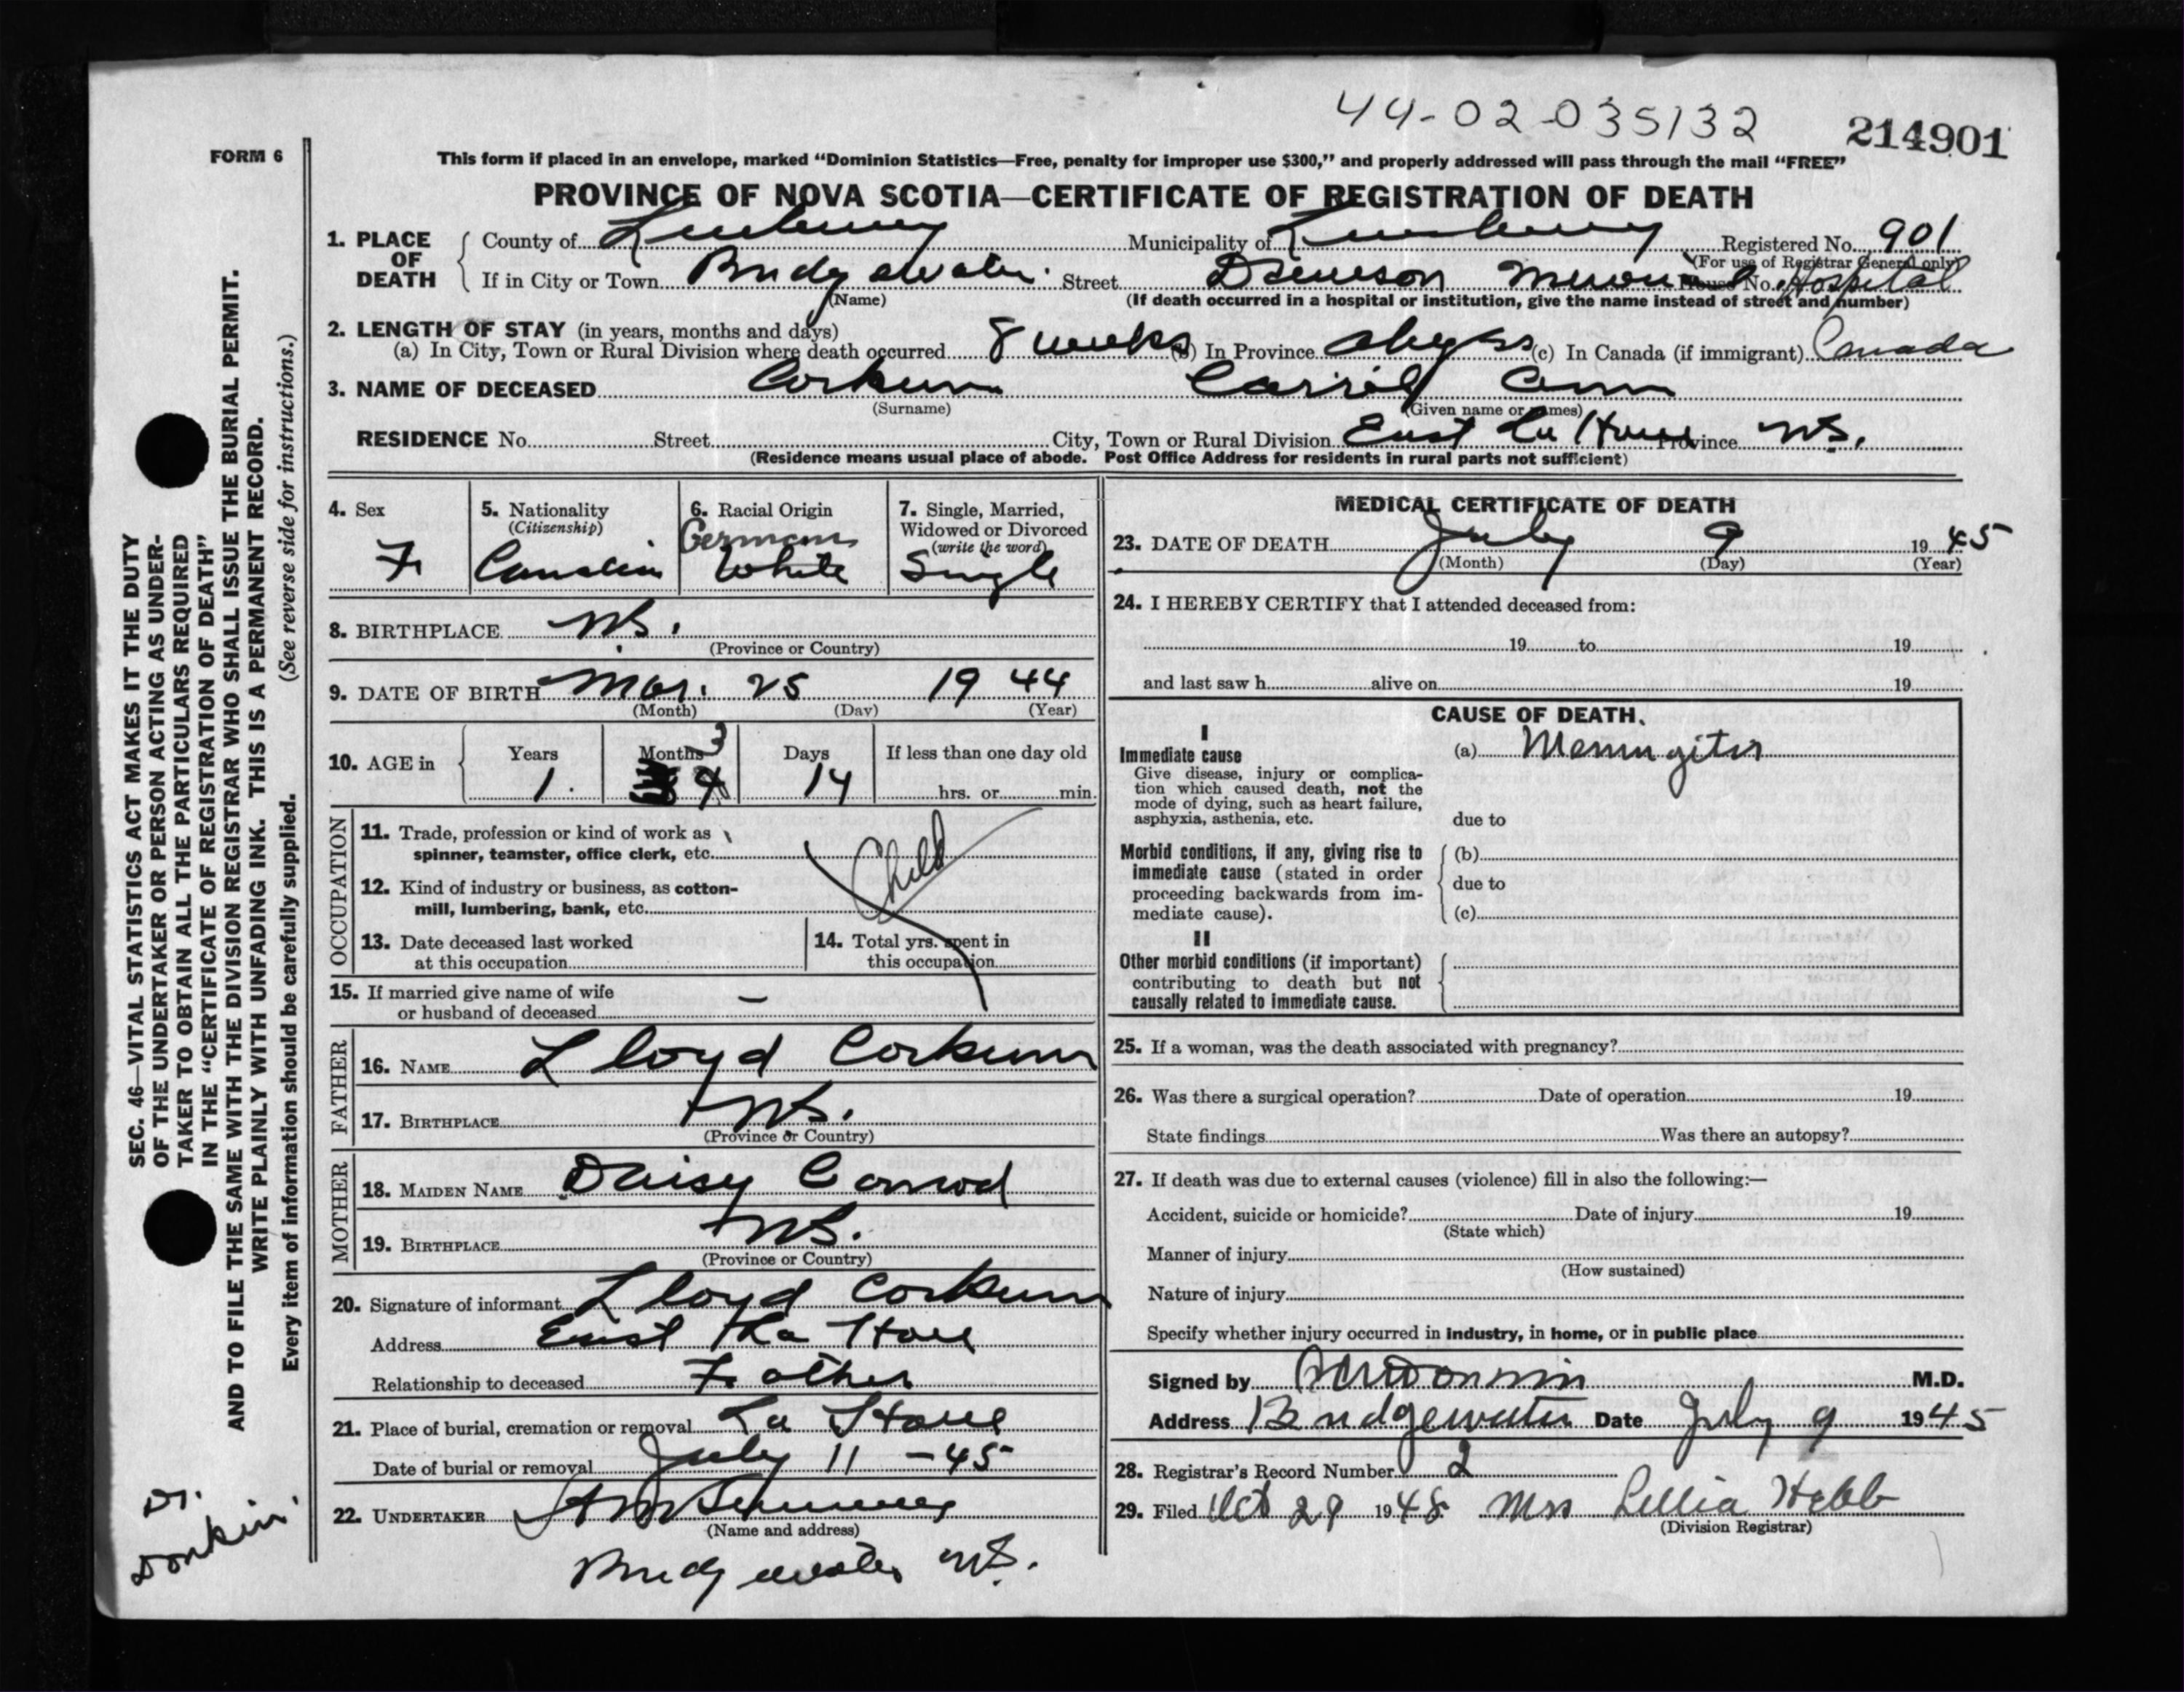 44-02-035132
214901
FORM 6
This form if placed in an envelope, marked “Dominion Statistics—Free, penalty for improper use $300,” and properly addressed will pass through the mail “FREE”
PROVINCE OF NOVA SCOTIA—CERTIFICATE OF REGISTRATION OF DEATH
1. PLACE OF DEATH County of Lunenburg Municipality of Lunenburg Registered No. 901
(For use of Registrar General only)
If in City or Town Bridgewater. Street Dawson Memorial Hospital House No.
(Name) (If death occurred in a hospital or institution, give the name instead of street and number)
2. LENGTH OF STAY (in years, months and days)
(a) In City, Town or Rural Division where death occurred 8 weeks (b) In Province always (c) In Canada (if immigrant) Canada
3. NAME OF DECEASED Corkum Carrol Ann
(Surname) (Given name or names)
RESIDENCE No. Street City, Town or Rural Division East La Have Province N.S.
(Residence means usual place of abode. Post Office Address for residents in rural parts not sufficient)
4. Sex F.
5. Nationality (Citizenship) Canadian
6. Racial Origin German White
7. Single, Married, Widowed or Divorced (write the word) Single
8. BIRTHPLACE N.S.
(Province or Country)
9. DATE OF BIRTH Mar. 25 1944
(Month) (Day) (Year)
10. AGE in Years 1. Months 3 4 Days 14 If less than one day old hrs. or min.
OCCUPATION
11. Trade, profession or kind of work as spinner, teamster, office clerk, etc.
Child
12. Kind of industry or business, as cotton-mill, lumbering, bank, etc.
13. Date deceased last worked at this occupation
14. Total yrs. spent in this occupation
15. If married give name of wife or husband of deceased —
FATHER
16. NAME Lloyd Corkum
17. BIRTHPLACE N.S.
(Province or Country)
MOTHER
18. MAIDEN NAME Daisy Conrod
19. BIRTHPLACE N.S.
(Province or Country)
20. Signature of informant Lloyd Corkum
Address East La Have
Relationship to deceased Father
21. Place of burial, cremation or removal La Have
Date of burial or removal July 11 - 45
22. UNDERTAKER
(Name and address)
Bridgewater N.S.
MEDICAL CERTIFICATE OF DEATH
23. DATE OF DEATH July 9 1945
(Month) (Day) (Year)
24. I HEREBY CERTIFY that I attended deceased from:
19 to 19
and last saw h alive on 19
CAUSE OF DEATH.
I
Immediate cause (a) Meningitis
Give disease, injury or complication which caused death, not the mode of dying, such as heart failure, asphyxia, asthenia, etc.
due to
Morbid conditions, if any, giving rise to immediate cause (stated in order proceeding backwards from immediate cause).
(b)
due to
(c)
II
Other morbid conditions (if important) contributing to death but not causally related to immediate cause.
25. If a woman, was the death associated with pregnancy?
26. Was there a surgical operation? Date of operation 19
State findings Was there an autopsy?
27. If death was due to external causes (violence) fill in also the following:—
Accident, suicide or homicide? Date of injury 19
(State which)
Manner of injury
(How sustained)
Nature of injury
Specify whether injury occurred in industry, in home, or in public place
Signed by M.D.
Address Bridgewater Date July 9 1945
28. Registrar's Record Number 2
29. Filed Oct 29 1948 Mrs Lellia Hebb
(Division Registrar)
SEC. 46—VITAL STATISTICS ACT MAKES IT THE DUTY
OF THE UNDERTAKER OR PERSON ACTING AS UNDER-
TAKER TO OBTAIN ALL THE PARTICULARS REQUIRED
IN THE “CERTIFICATE OF REGISTRATION OF DEATH”
AND TO FILE THE SAME WITH THE DIVISION REGISTRAR WHO SHALL ISSUE THE BURIAL PERMIT.
WRITE PLAINLY WITH UNFADING INK. THIS IS A PERMANENT RECORD.
Every item of information should be carefully supplied. (See reverse side for instructions.)
Dr. Donkin.